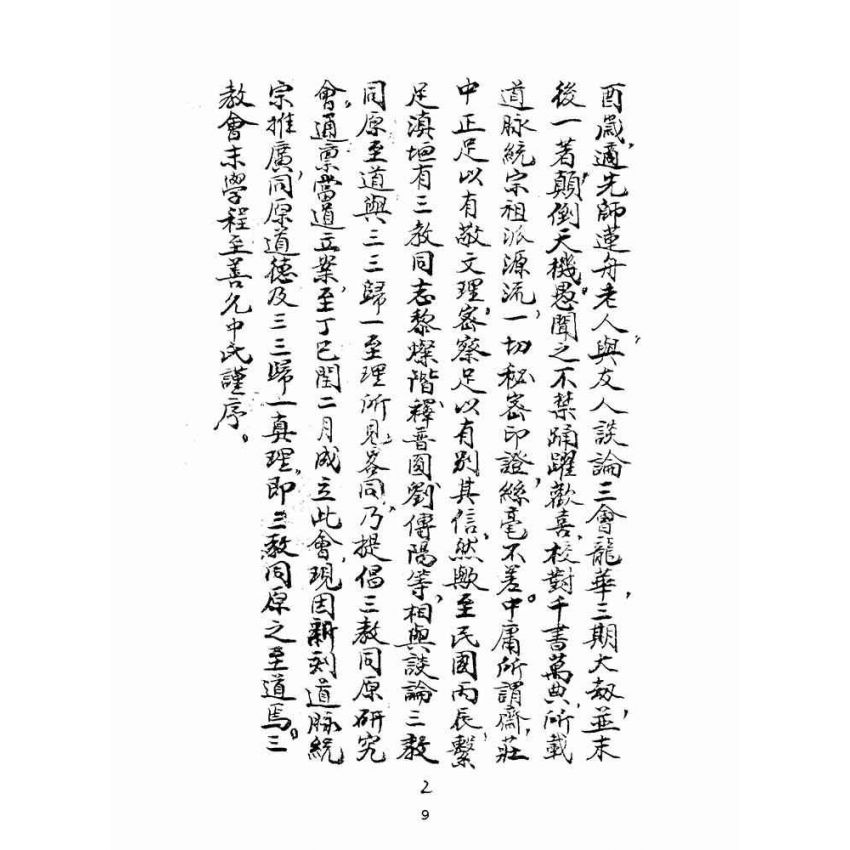 酉歲適先師蓮舟老人與友人談論三會龍華三期大劫並末
後一著顛倒天機愚聞之不禁踊躍歡喜校對千書萬典所載
道脉統宗祖派源流一切秘密印證絲毫不差中庸所謂齋莊
中正足以有敬文理密察足以有別其信然歟至民國丙辰繫
足滇垣有三教同志黎燦階釋晋圓劉傳陽等相與談論三教
同原至道與三三歸一至理所見畧同乃提倡三教同原研究
會通稟當道立案至丁巳閏二月成立此會現因新刻道脉統
宗推廣同原道德及三三歸一真理即三教同原之至道焉三
教會末學程至善允中氏謹序。
2
9